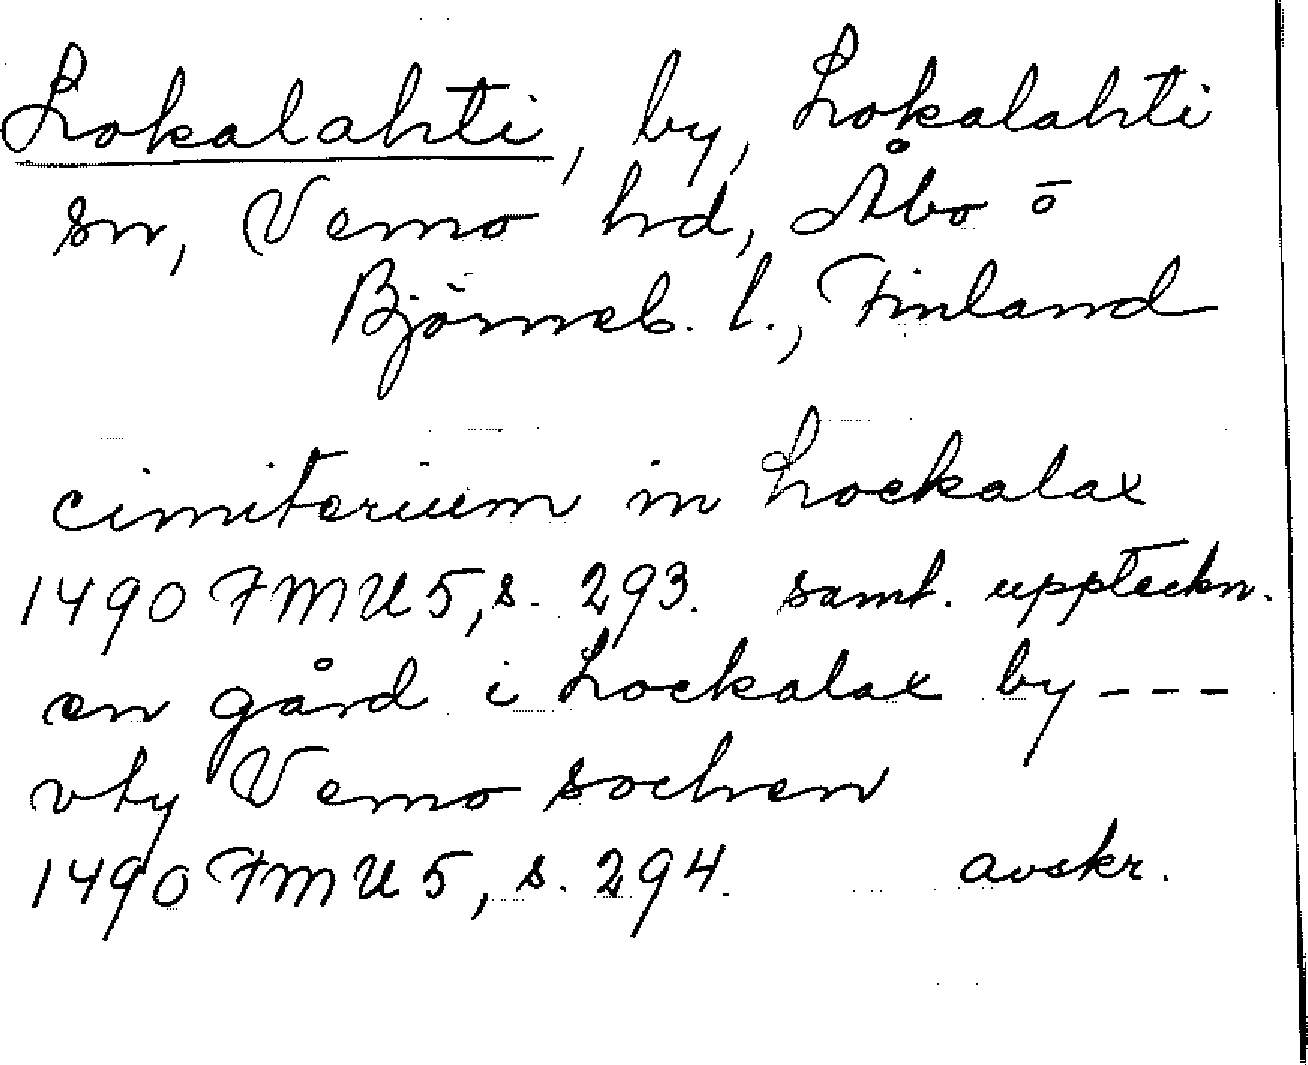 Lokalahti, by, Lokalahti
sn, Vemo hd, Åbo o
Björneb. l., Finland
cimiterium in Lockalax
1490 FMU 5, s. 293. samt. uppteckn.
en gård i Lockalax by ---
vty Vemo sochen
1490 FMU 5, s. 294. avskr.